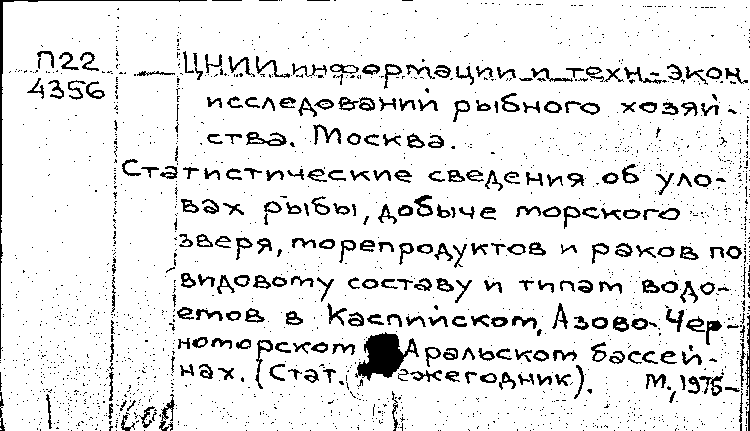 П22
4356
ЦНИИ информации и техн.-экон.
исследований рыбного хозяй-
ства. Москва.
Статистические сведения об уло-
вах рыбы, добыче морского
зверя, морепродуктов и раков по
видовому составу и типам водо-
емов в Каспийском, Азово-Чер-
номорском Аральском бассей-
нах. (Стат. ежегодник). М., 1975-